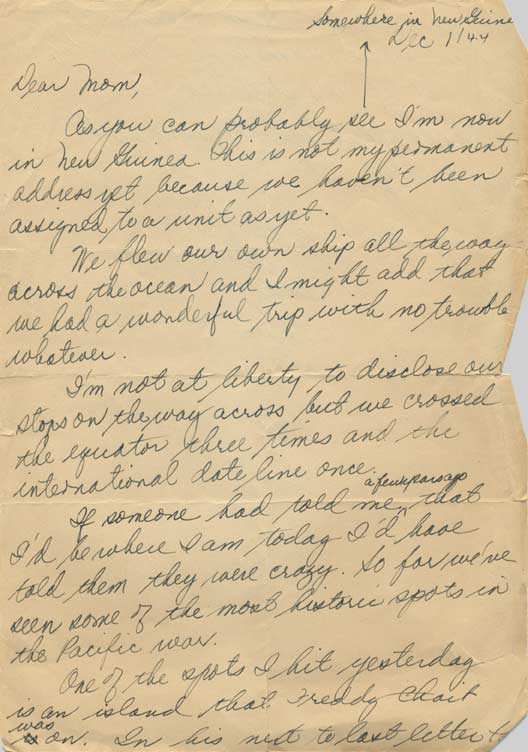 Somewhere in New Guine
Dec 1/44
Dear Mom,
As you can probably see I'm now
in New Guinea. This is not my permanent
address yet because we haven't been
assigned to a unit as yet.
We flew our own ship all the way
across the ocean and I might add that
we had a wonderful trip with no trouble
whatever.
I'm not at liberty to disclose our
stops on the way across but we crossed
the equator three times and the
international date line once.
a few years ago
If someone had told me, that
I'd be where I am today I'd have
told them they were crazy. So far we've
seen some of the most historic spots in
the Pacific war.
One of the spots I hit yesterday
is an island that Freddy Chait
was
on. In his next to last letter t